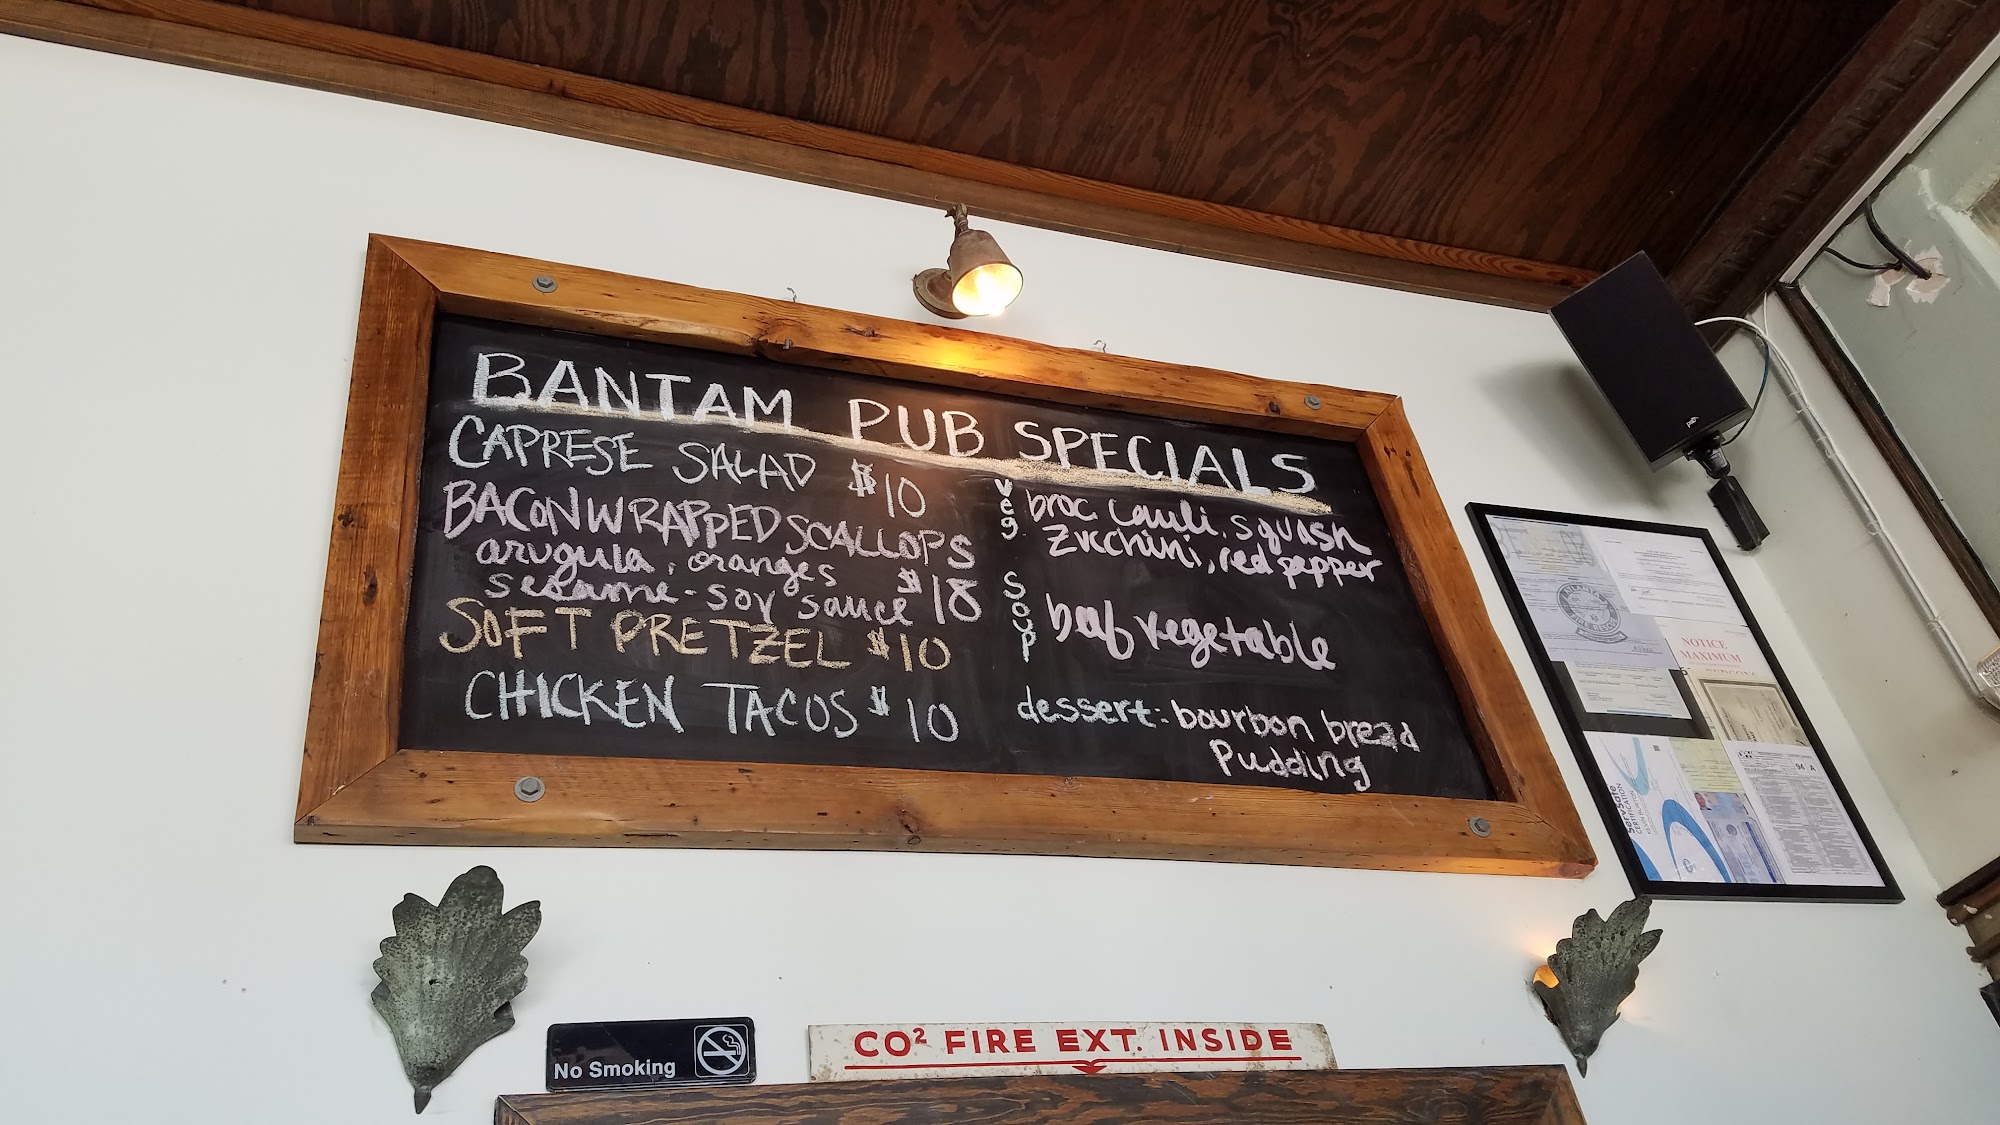 BANTAM PUB SPECIALS
CAPRESE SALAD $10
BACON WRAPPED SCALLOPS
arugula, oranges
sesame-soy sauce $18
SOFT PRETZEL $10
CHICKEN TACOS $10
veg. broc cauli, squash
zucchini, red pepper
SOUP vegetable
dessert: bourbon bread
pudding
NOTICE
MAXIMUM
ServSafe
CERTIFICATION
94 A
No Smoking
CO² FIRE EXT. INSIDE